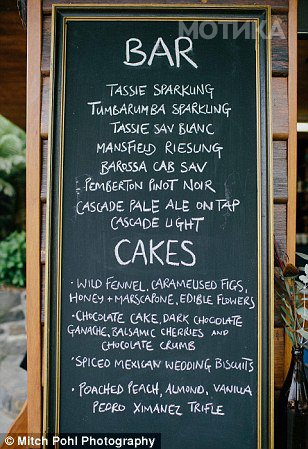 МОТИКА
BAR
TASSIE SPARKLING
TUMBARUMBA SPARKLING
TASSIE SAV BLANC
MANSFIELD RIESLING
BAROSSA CAB SAV
PEMBERTON PINOT NOIR
CASCADE PALE ALE ON TAP
CASCADE LIGHT
CAKES
• WILD FENNEL, CARAMELISED FIGS,
HONEY + MARSCAPONE, EDIBLE FLOWERS
• CHOCOLATE CAKE, DARK CHOCOLATE
GANACHE, BALSAMIC CHERRIES AND
CHOCOLATE CRUMB
• SPICED MEXICAN WEDDING BISCUITS
• POACHED PEACH, ALMOND, VANILLA
PEDRO XIMANEZ TRIFLE
© Mitch Pohl Photography